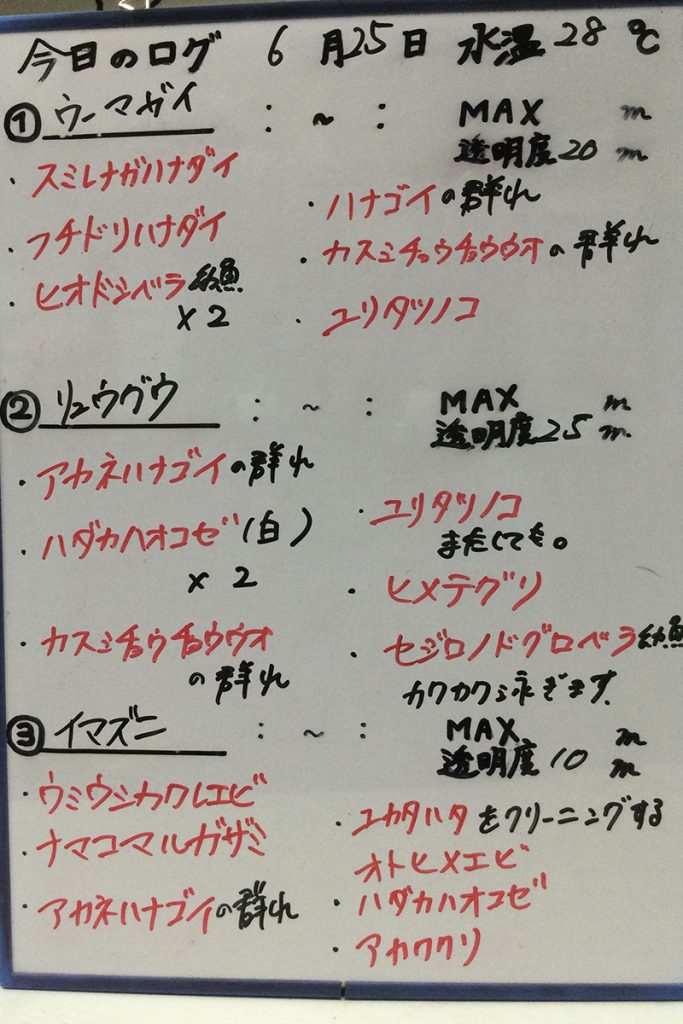 今日のログ 6月25日 水温28℃
① ウーマガイ : ~ : MAX m
透明度20m
・スミレナガハナダイ
・フチドリハナダイ
・ヒオドシベラ幼魚
×2
・ハナゴイの群れ
・カスミチョウチョウウオの群れ
・ユリタツノコ
② リュウグウ : ~ : MAX m
透明度25m
・アカネハナゴイの群れ
・ハダカハオコゼ(白)
×2
・カスミチョウチョウウオ
の群れ
・ユリタツノコ
またしても。
・ヒメテグリ
・セジロノドグロベラ幼魚
カクカク泳ぎます.
③ イマズニ : ~ : MAX m
透明度10m
・ウミウシカクレエビ
・ナマコマルガザミ
・アカネハナゴイの群れ
・ユカタハタをクリーニングする
オトヒメエビ
・ハダカハオコゼ
・アカククリ